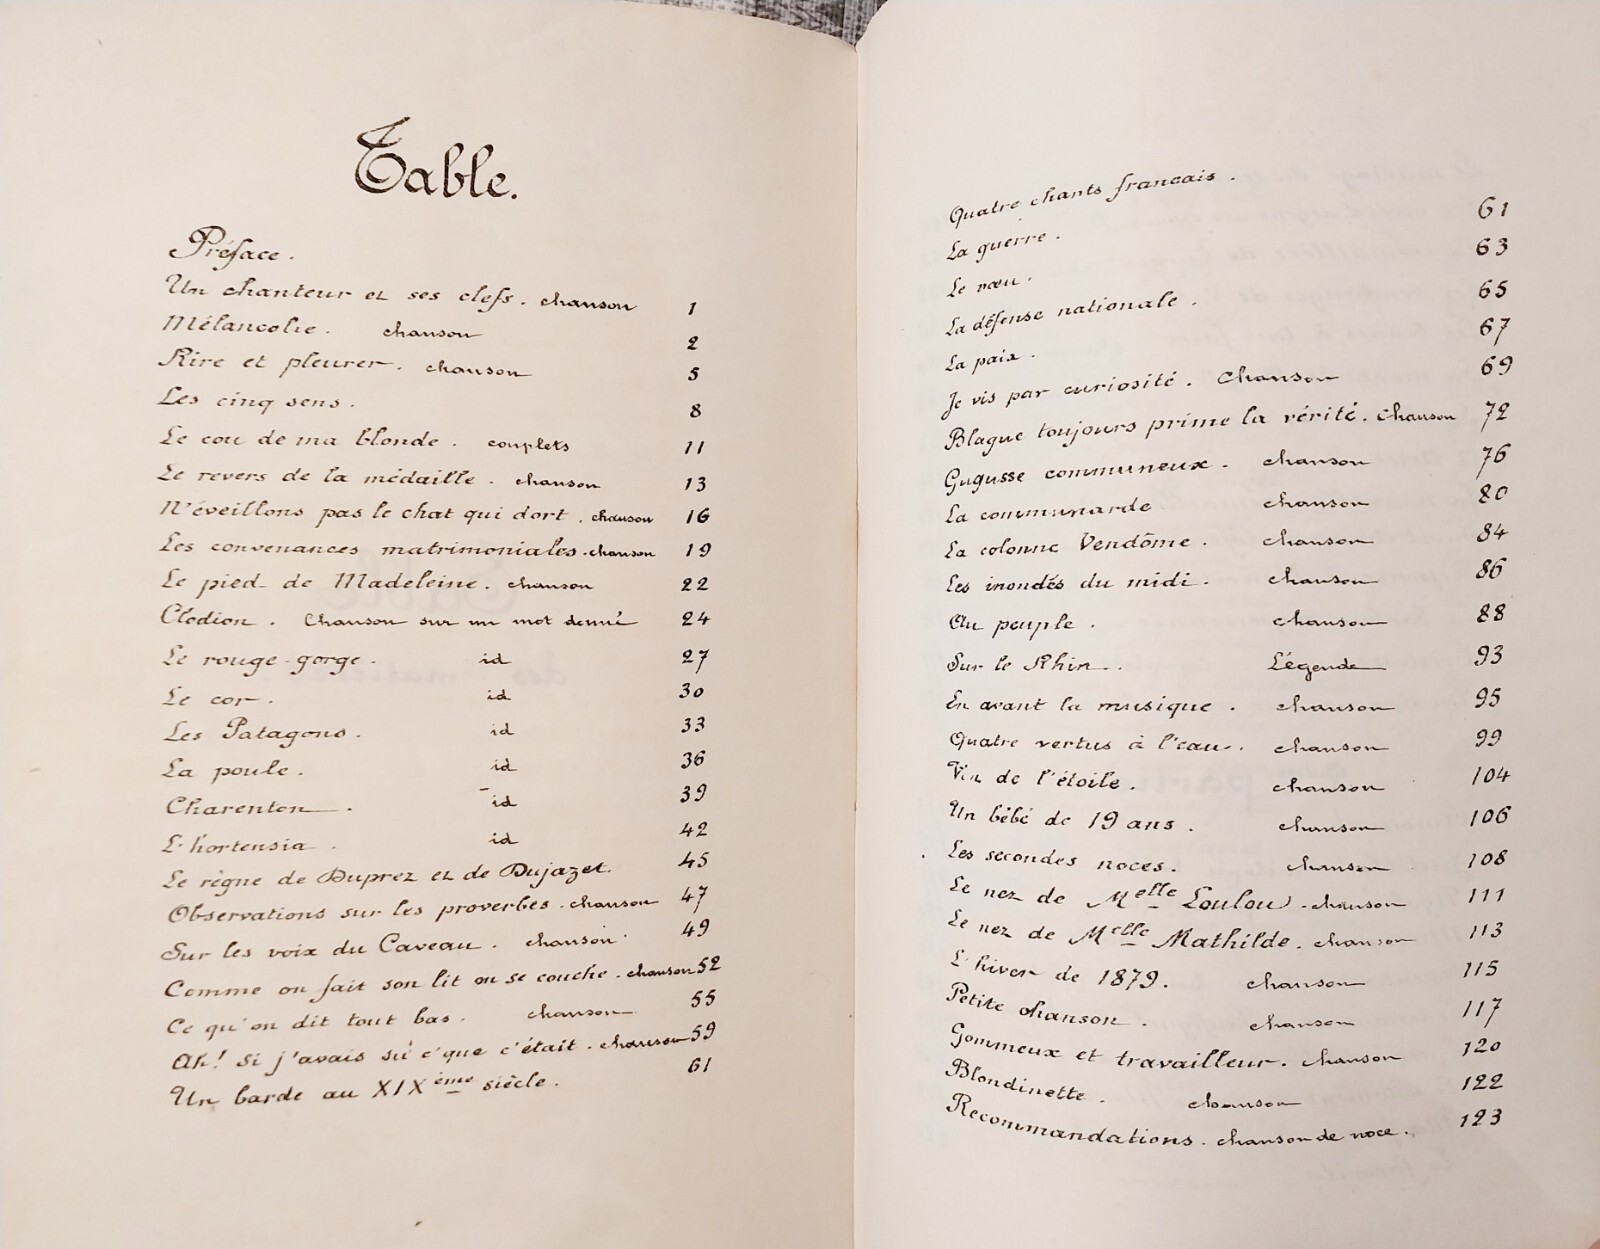 Table.
Préface.
Un chanteur et ses clefs. chanson 1
Mélancolie. chanson 2
Rire et pleurer. chanson 5
Les cinq sens. 8
Le cou de ma blonde. couplets 11
Le revers de la médaille. chanson 13
N'éveillons pas le chat qui dort. chanson 16
Les convenances matrimoniales. chanson 19
Le pied de Madeleine. chanson 22
Clodion. Chanson sur un mot donné 24
Le rouge-gorge. id 27
Le cor. id 30
Les Patagons. id 33
La poule. id 36
Charenton. id 39
L'hortensia. id 42
Le règne de Duprez et de Dujazet. 45
Observations sur les proverbes. chanson 47
Sur les voix du Caveau. chanson 49
Comme on fait son lit on se couche. chanson 52
Ce qu'on dit tout bas. chanson 55
Ah! Si j'avais su c'que c'était. chanson 59
Un barde au XIXème siècle. 61
Quatre chants francais.
La guerre. 61
Le vœu. 63
La défense nationale. 65
La paix. 67
Je vis par curiosité. Chanson 69
Blague toujours prime la vérité. Chanson 72
Gugusse communeux. chanson 76
La communarde chanson 80
La colonne Vendôme. chanson 84
Les inondés du midi. chanson 86
Au peuple. chanson 88
Sur le Rhin. Légende 93
En avant la musique. chanson 95
Quatre vertus à l'eau. chanson 99
Vin de l'étoile. chanson 104
Un bébé de 19 ans. chanson 106
Les secondes noces. chanson 108
Le nez de Melle Loulou. chanson 111
Le nez de Melle Mathilde. chanson 113
L'hiver de 1879. chanson 115
Petite chanson. chanson 117
Gommeux et travailleur. chanson 120
Blondinette. chanson 122
Recommandations. chanson de noce. 123